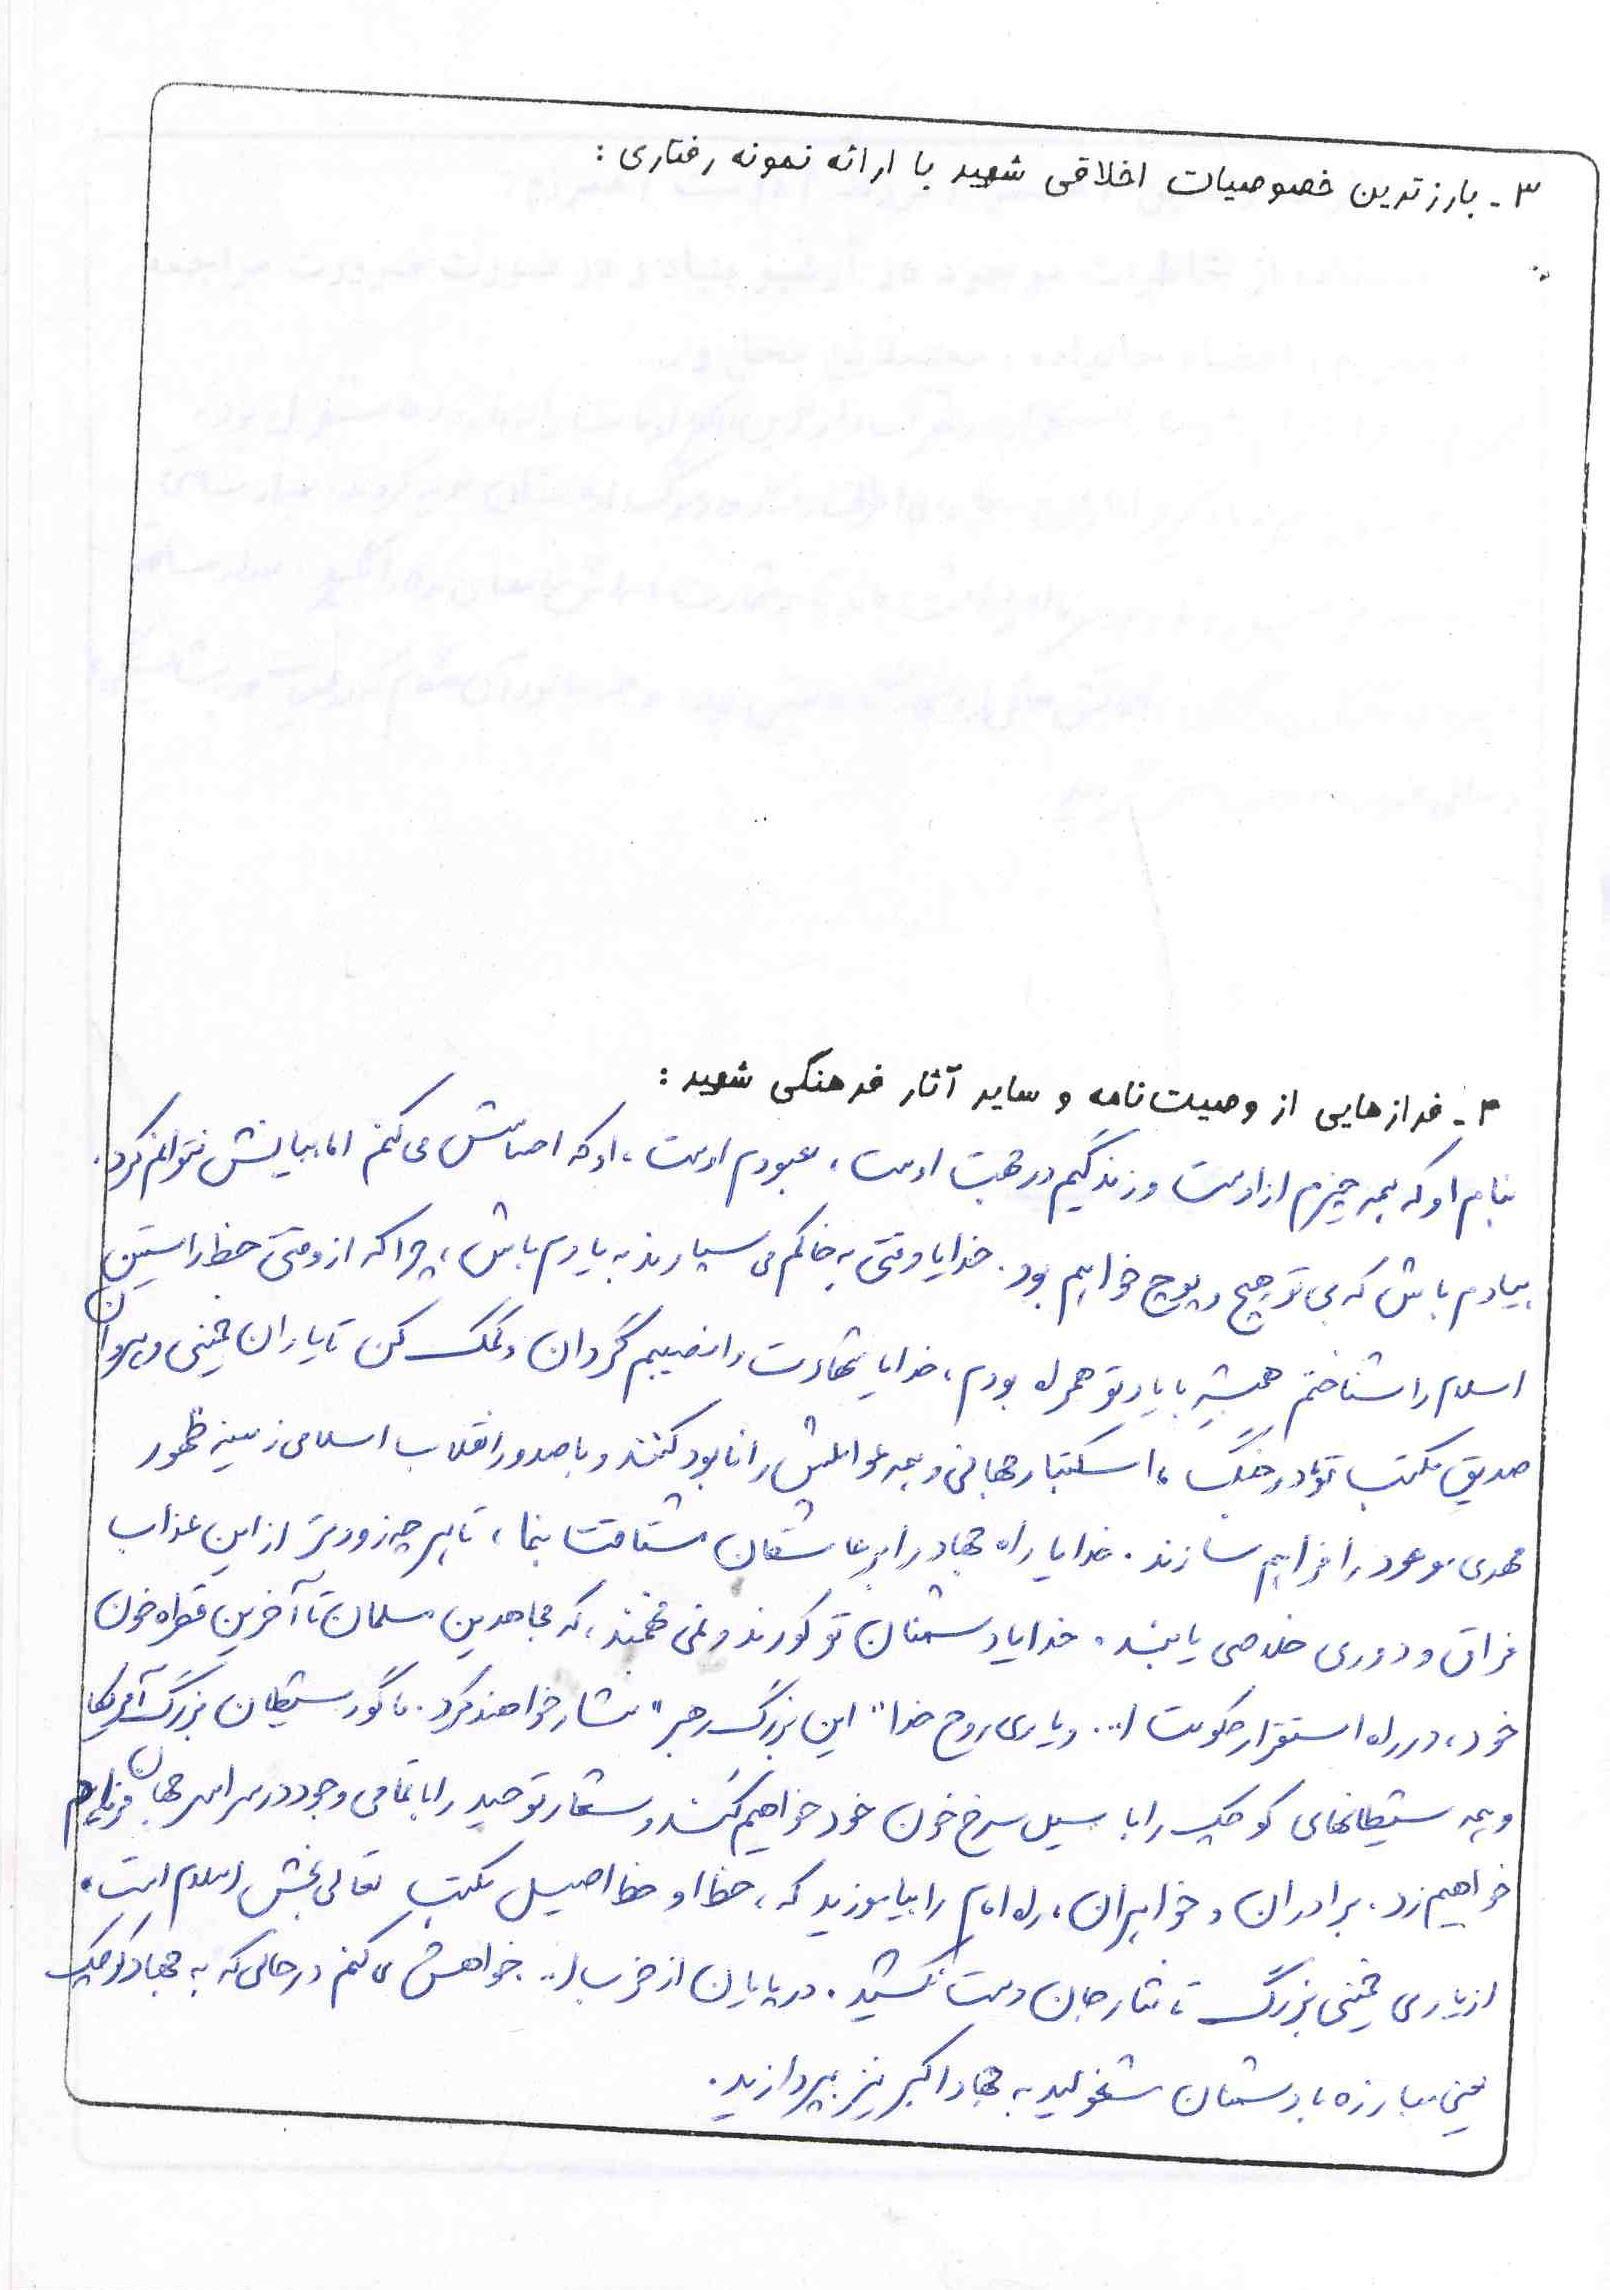 ۳- بارزترین خصوصیات اخلاقی شهید با ارائه نمونه رفتاری :
۴- فرازهایی از وصیت‌نامه و سایر آثار فرهنگی شهید :
بنام او که همه چیزم از اوست و زندگیم در جهت اوست ، معبودم اوست ، او که احساسش می کنم اما بیانش نتوانم کرد .
بیادم باش که بی تو هیچ و پوچ خواهم بود . خدایا وقتی به خاکم می سپارند به یادم باش ، چرا که از وقتی خط راستین
اسلام را شناختم همیشه با یاد تو همراه بودم ، خدایا شهادت را نصیبم گردان و کمک کن تا یاران خمینی و پیروان
صدیق مکتب تو در جنگ با استکبار جهانی و همه عواملش را نابود کنند و با صدور انقلاب اسلامی زمینه ظهور
مهدی موعود را فراهم سازند . خدایا راه جهاد را بر عاشقان مشتاقت بنما ، تا هر چه زودتر از این عذاب
فراق و دوری خلاصی یابند . خدایا دشمنان تو کورند و نمی فهمند ، که مجاهدین مسلمان تا آخرین قطره خون
خود ، در راه استقرار حکومت ا... و یاری روح خدا " این بزرگ رهبر " نثار خواهند کرد . ما گور شیطان بزرگ آمریکا
و همه شیطانهای کوچک را با سیل سرخ خون خود خواهیم کند و شعار توحید را با تمامی وجود در سراسر جهان فریاد
خواهیم زد . برادران و خواهران ، راه امام را بیاموزید که ، خط او خط اصیل مکتب تعالی بخش اسلام است .
از یاری خمینی بزرگ تا نثار جان دست نکشید . در پایان از حزب ا... خواهش می کنم در حالی که به جهاد کوچک
یعنی مبارزه با دشمنان مشغولید به جهاد اکبر نیز بپردازید .